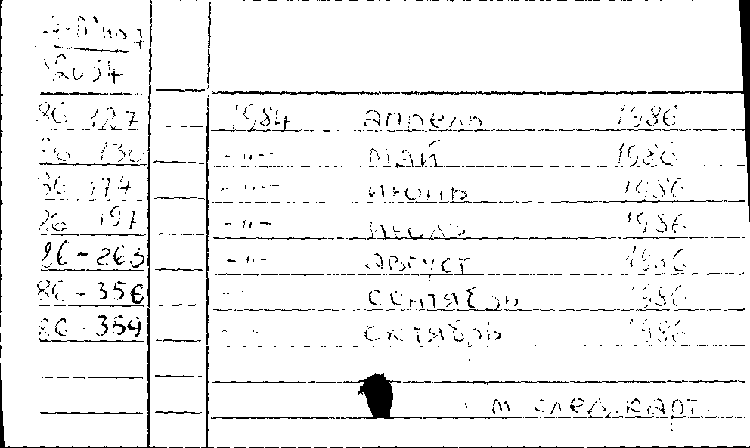 86 127 1984 апрель 1986
86 130 -"- май 1986
86 174 -"- июнь 1986
86 197 -"- июль 1986
86-263 -"- август 1986
86-356 сентябрь 1986
86-359 октябрь 1986
см след. карт.